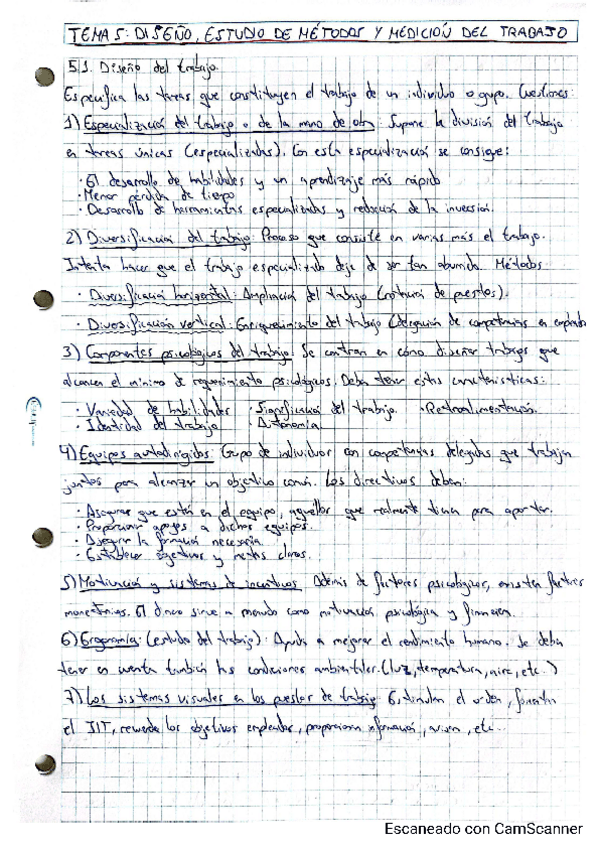 TEMA 5: DISEÑO, ESTUDIO DE MÉTODOS Y MEDICIÓN DEL TRABAJO
5.1. Diseño del trabajo.
Especifica las tareas que constituyen el trabajo de un individuo o grupo. Cuestiones:
1) Especialización del trabajo o de la mano de obra: Supone la división del trabajo
en tareas únicas (especializadas). Con esta especialización se consigue:
· El desarrollo de habilidades y un aprendizaje más rápido
· Menor pérdida de tiempo
· Desarrollo de herramientas especializadas y reducción de la inversión.
2) Diversificación del trabajo: Proceso que consiste en variar más el trabajo.
Intenta hacer que el trabajo especializado deje de ser tan aburrido. Métodos:
· Diversificación horizontal: Ampliación del trabajo (rotación de puestos).
· Diversificación vertical: Enriquecimiento del trabajo (delegación de competencias en empleado
3) Componentes psicológicos del trabajo: Se centran en cómo diseñar trabajos que
alcancen el mínimo de requerimiento psicológicos. Deben tener estas características:
· Variedad de habilidades · Significación del trabajo. · Retroalimentación.
· Identidad del trabajo · Autonomía.
4) Equipos autodirigidos: Grupo de individuos con competencias delegadas que trabajan
juntos para alcanzar un objetivo común. Los directivos deben:
· Asegurar que estén en el equipo, aquellos que realmente tienen para aportar.
· Proporcionar apoyos a dichos equipos.
· Asegurar la formación necesaria.
· Establecer objetivos y metas claros.
5) Motivación y sistemas de incentivos: Además de factores psicológicos, existen factores
monetarios. El dinero sirve a menudo como motivación psicológica y financiera.
6) Ergonomía: (estudio del trabajo). Ayuda a mejorar el rendimiento humano. Se deben
tener en cuenta también las condiciones ambientales. (luz, temperatura, aire, etc..)
7) Los sistemas visuales en los puestos de trabajo: Estimulan el orden, fomentan
el JIT, recuerda los objetivos empleados, proporciona información, avisen, etc...
Escaneado con CamScanner